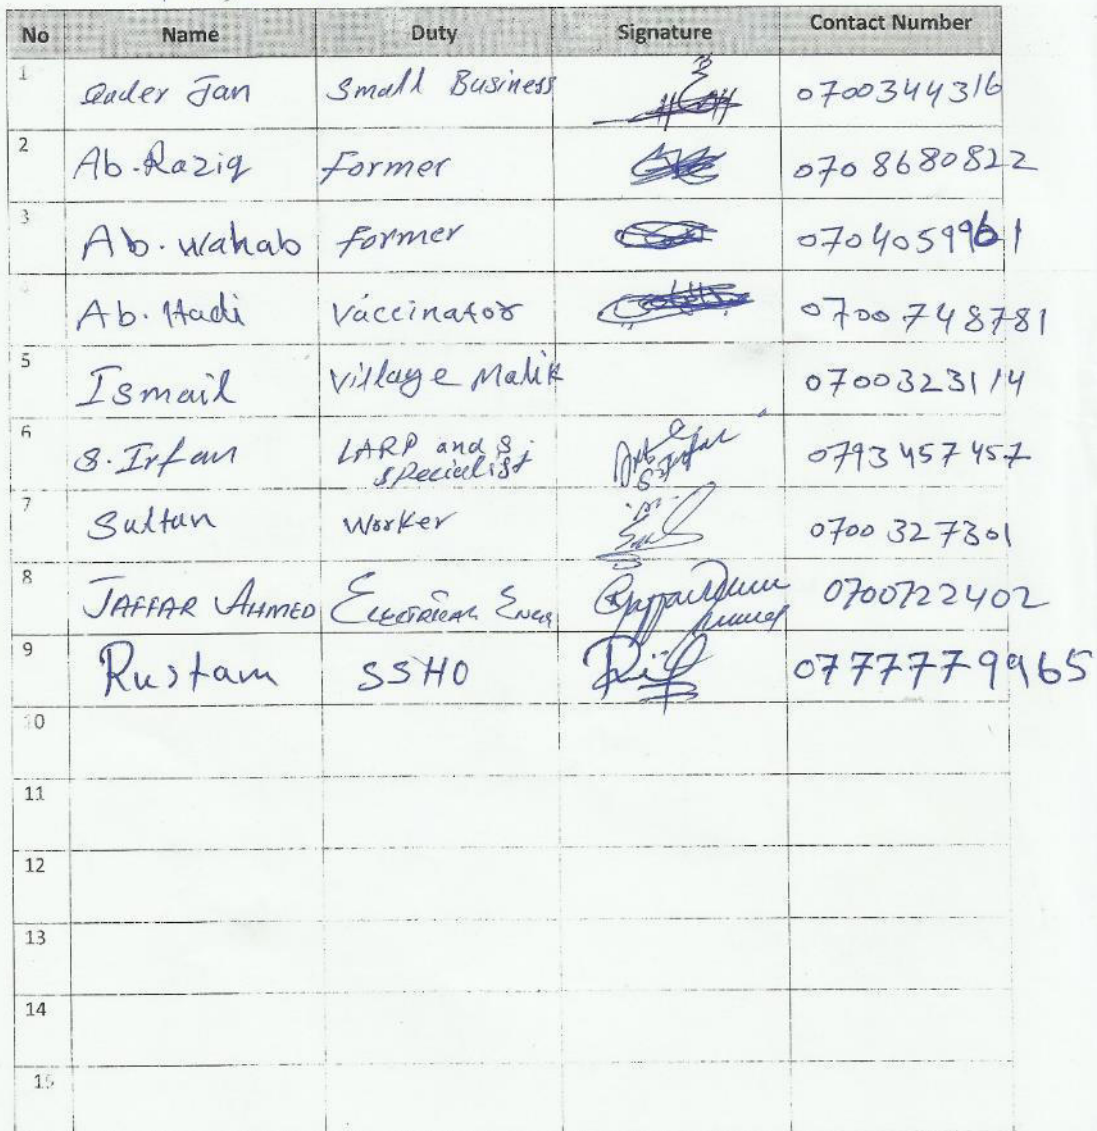 No Name Duty Signature Contact Number
1 Qader Jan Small Business 0700344316
2 Ab.Raziq Former 0708680822
3 Ab.wahab Former 0704059961
Ab.Hadi Vaccinator 0700748781
5 Ismail Village Malik 0700323114
6 S.Irfan LARP and S.
specialist 0793457457
7 Sultan Worker 0700327301
8 JAFFAR AHMED ELECTRICAL ENGR 0700722402
9 Rustam SSHO 0777779965
10
11
12
13
14
15